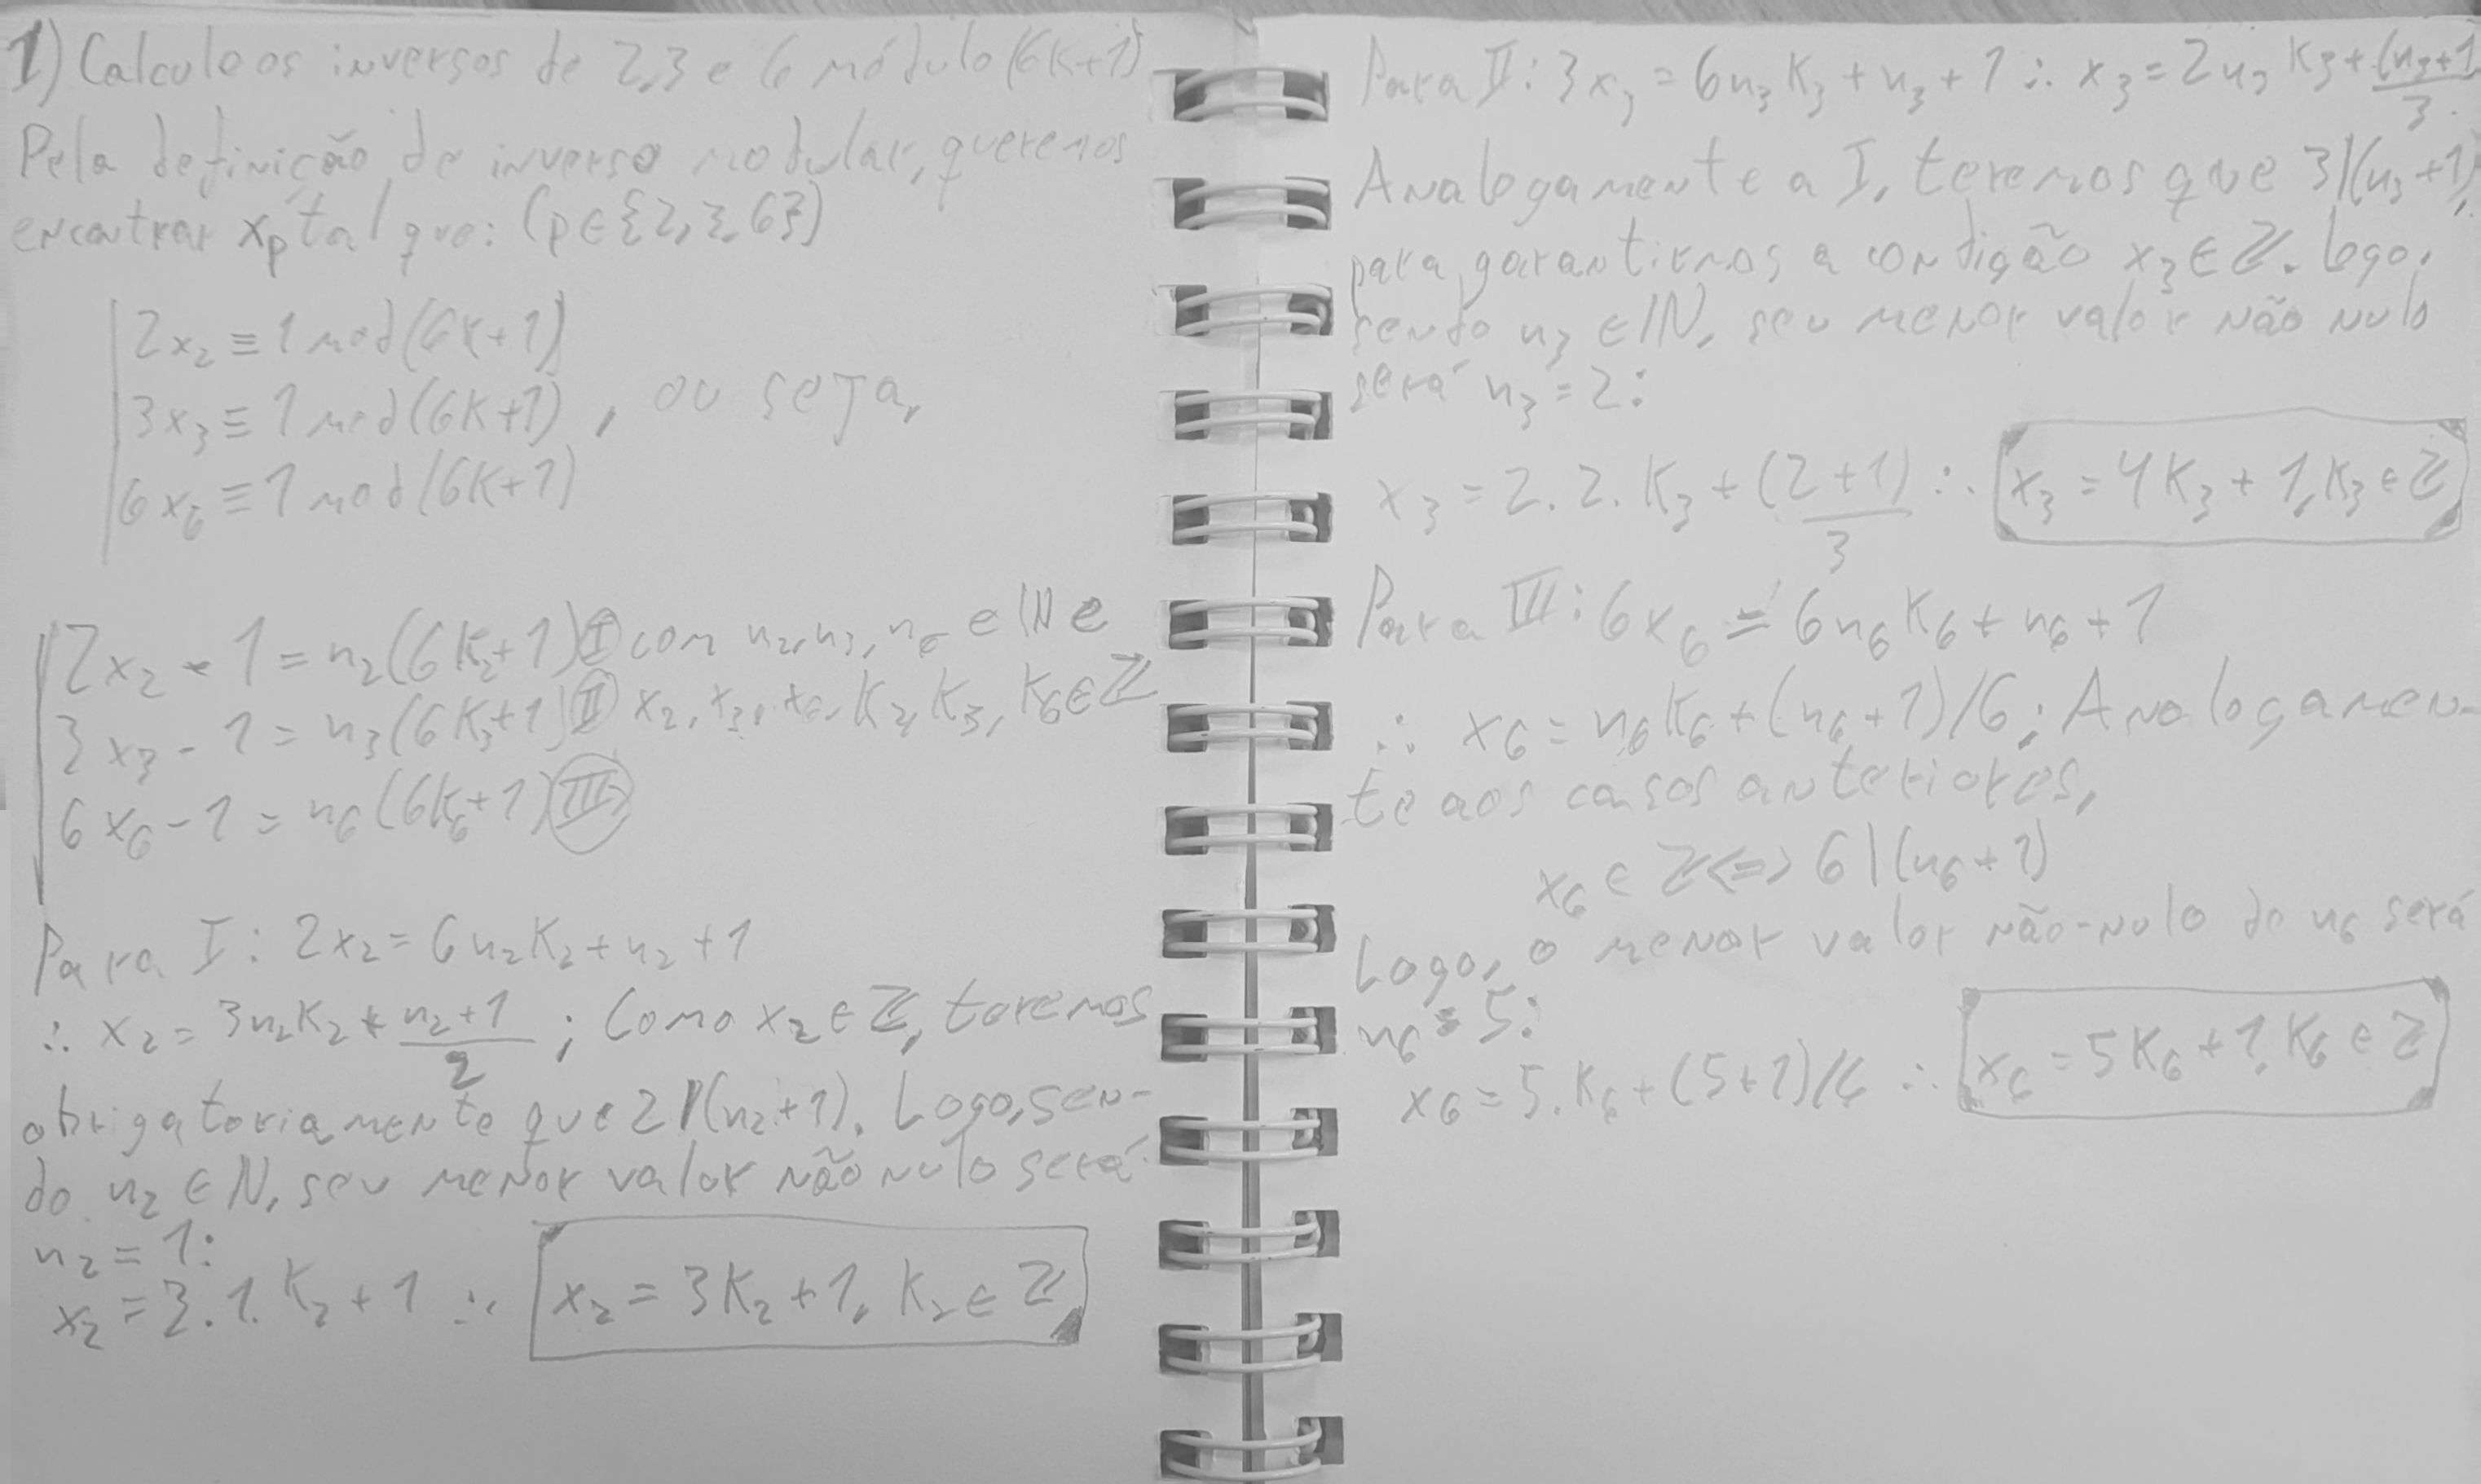 1) Calcule os inversos de 2, 3 e 6 módulo (6K+1)
Pela definição de inverso modular, queremos
encontrar xₚ tal que: (p ∈ {2, 3, 6})
2x₂ ≡ 1 mod (6K+1)
3x₃ ≡ 1 mod (6K+1), ou seja,
6x₆ ≡ 1 mod (6K+1)
2x₂ - 1 = n₂(6K₂+1) I com n₂, n₃, n₆ ∈ ℕ e
3x₃ - 1 = n₃(6K₃+1) II x₂, x₃, x₆, K₂, K₃, K₆ ∈ ℤ
6x₆ - 1 = n₆(6K₆+1) III
Para I: 2x₂ = 6n₂K₂ + n₂ + 1
∴ x₂ = 3n₂K₂ + (n₂+1)/2; Como x₂ ∈ ℤ, teremos
obrigatoriamente que 2|(n₂+1). Logo, sen-
do n₂ ∈ N, seu menor valor não nulo será
n₂ = 1:
x₂ = 3.1.K₂ + 1 ∴ x₂ = 3K₂ + 1, K₂ ∈ ℤ
Para II: 3x₃ = 6n₃K₃ + n₃ + 1 ∴ x₃ = 2n₃K₃ + (n₃+1)/3.
Analogamente a I, teremos que 3|(n₃+1),
para garantirmos a condição x₃ ∈ ℤ. Logo,
sendo n₃ ∈ ℕ, seu menor valor não nulo
será n₃ = 2:
x₃ = 2.2.K₃ + (2+1)/3 ∴ x₃ = 4K₃ + 1, K₃ ∈ ℤ
Para III: 6x₆ = 6n₆K₆ + n₆ + 1
∴ x₆ = n₆K₆ + (n₆+1)/6; Analogamen-
te aos casos anteriores,
x₆ ∈ ℤ <=> 6|(n₆+1)
Logo, o menor valor não-nulo de n₆ será
n₆ = 5:
x₆ = 5.K₆ + (5+1)/6 ∴ x₆ = 5K₆ + 1, K₆ ∈ ℤ